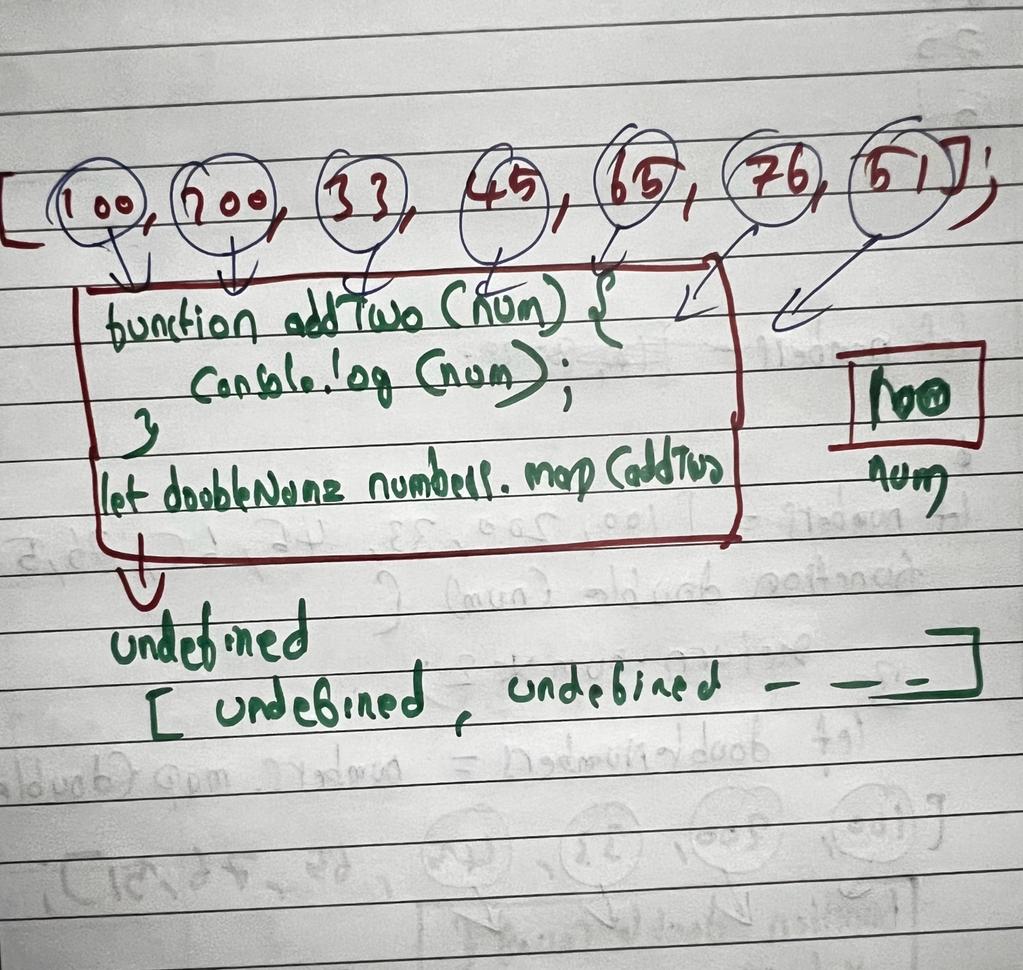 [100, 200, 33, 45, 65, 76, 51];
function addTwo (num) {
console.log (num);
}
let doobleNum= numbers. map (addTwo
100
num
undefined
[ undefined, undefined - - - ]